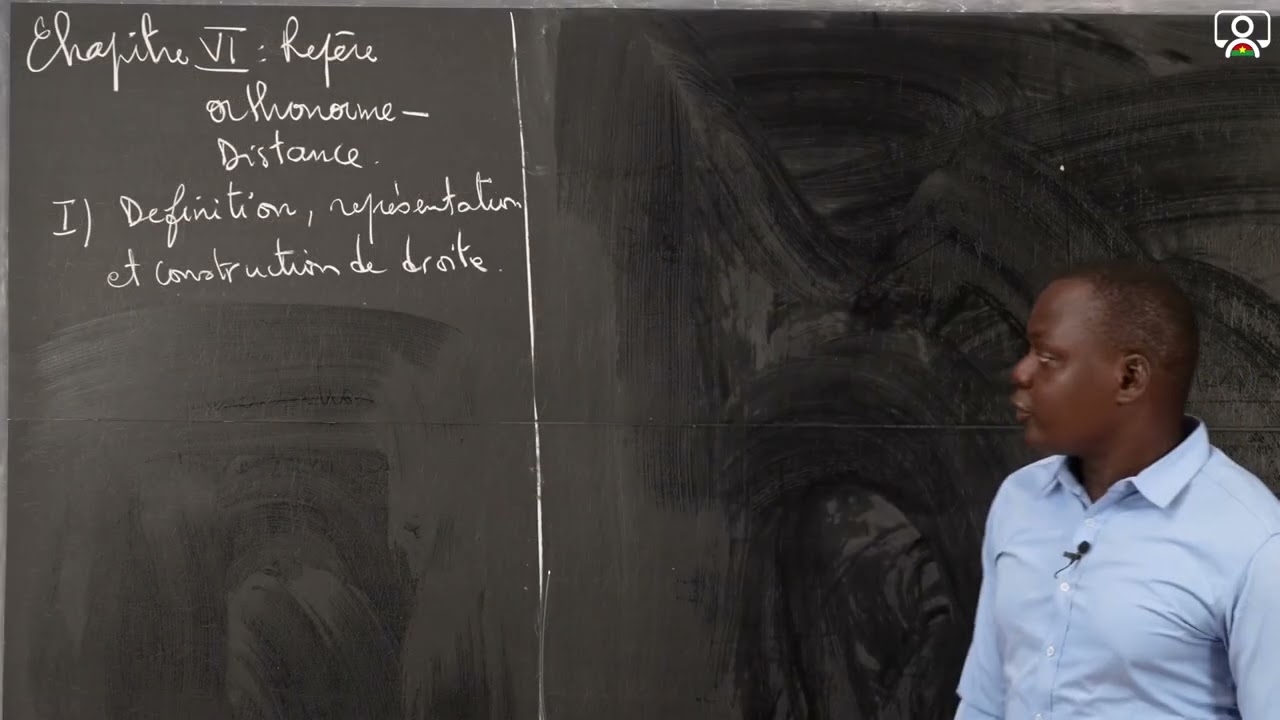 Chapitre VI : Repère
orthonormé -
Distance.
I) Definition, représentation
et construction de droite.